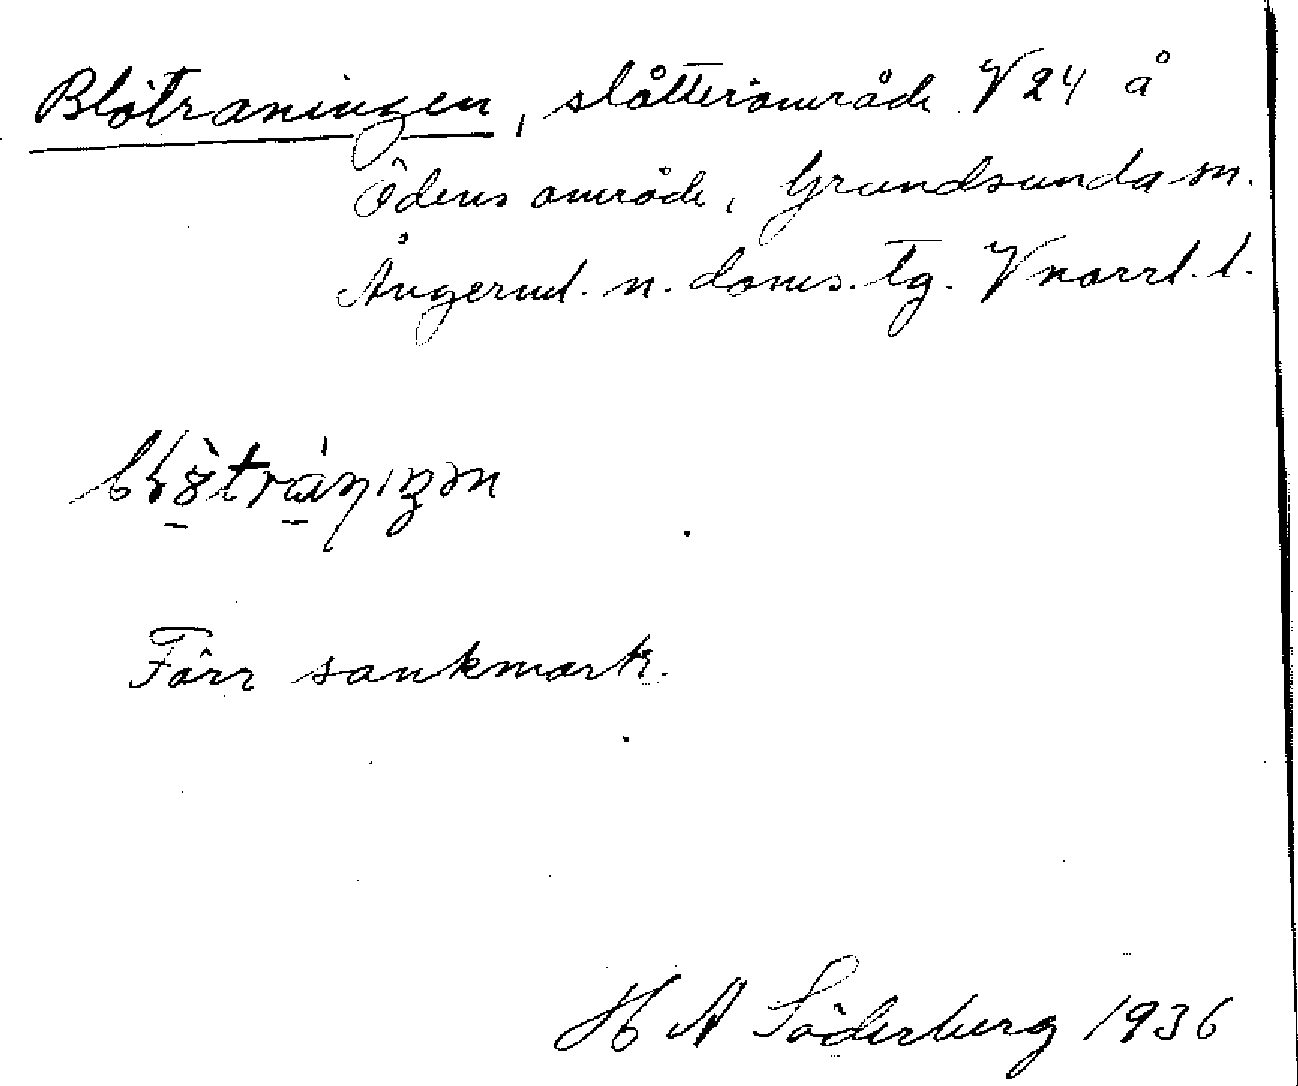 Blötraningen, slåtterområde V 24 å
Ödens område, Grundsunda sn.
Ångerml. n. doms. tg. Vnorrl. l.
Förr sankmark.
H A Söderberg 1936